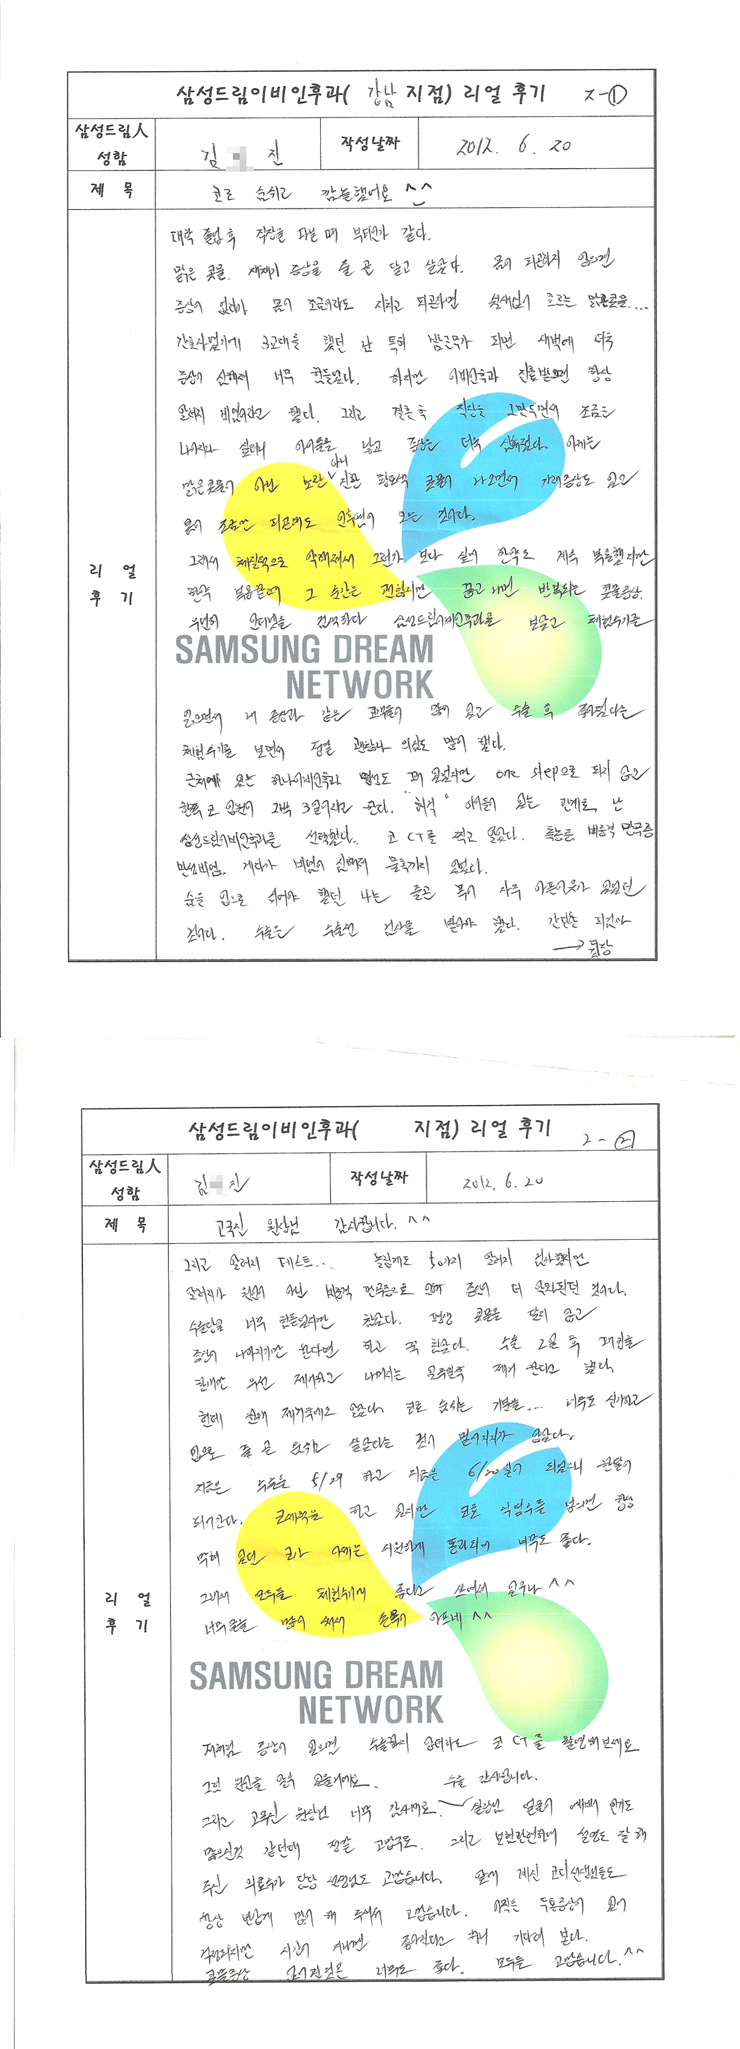 삼성드림이비인후과( 강남 지점) 리얼 후기 2-①
삼성드림人
성함
김 진
작성날짜
2012. 6. 20
제 목
코로 숨쉬고 깜놀했어요 ^^
리 얼
후 기
대학 졸업 후 직장을 다닐 때 부터인가 같다.
맑은 콧물. 재채기 증상을 줄 곧 달고 살았다. 몸이 피곤하지 않으면
증상이 없다가 몸이 조금이라도 지치고 피곤하면 쉴새없이 흐르는 맑은콧물...
간호사였기에 3교대를 했던 난 특히 밤근무가 되면 새벽에 더욱
증상이 심해져 너무 힘들었다. 하지만 이비인후과 진료받으면 항상
알러지 비염이라고 했다. 그리고 결혼 후 직장을 그만두면서 조금은
나아지나 싶더니 아이들을 낳고 증상은 더욱 심해졌다. 이제는
맑은콧물이 아닌 노란 아니 진한 콧물이 나오면서 가래증상도 있고
몸이 조금만 피곤해도 인후염이 오는 것이다.
그래서 체질적으로 약해져서 그런가 보다 싶어 한약도 계속 복용했지만
한약 복용할때 그 순간은 괜찮지만 끊고 나면 반복되는 콧물증상.
우연히 인터넷을 검색하다 삼성드림이비인후과를 보았고 체험수기를
SAMSUNG DREAM
NETWORK
읽으면서 내 증상과 같은 분들이 많이 있고 수술 후 좋아졌다는
체험수기를 보면서 정말 괜찮나 의심도 많이 했다.
근처에 있는 하나이비인후과 병원도 가 보았지만 one step으로 되지 않고
한쪽 코 입원이 2박 3일이라고 한다. "허걱" 아이들이 있는 관계로 난
삼성드림이비인후과를 선택했다. 코 CT를 찍고 알았다. 축농증 비중격 만곡증
만성비염. 게다가 비염이 심해져 물혹까지 있었다.
숨을 입으로 쉬어야 했던 나는 줄곧 목이 자주 아픈이유가 있었던
것이다. 수술은 수술전 검사를 받아야 했다. 간단한 피검사
→ 뒷장
삼성드림이비인후과( 지점) 리얼 후기 2-②
삼성드림人
성함
김 진
작성날짜
2012. 6. 20
제 목
고국진 원장님 감사합니다. ^^
리 얼
후 기
그리고 알러지 테스트... 놀랍게도 50가지 알러지 검사했지만
알러지가 원인이 아닌 비중격 만곡증으로 인해 증상이 더 악화됐던 것이다.
수술당일 너무 힘들었지만 참았다. 평생 콧물을 달지 않고
증상이 나아지기만 한다면 하고 꾹 참았다. 수술 2일 후 패킹을
한개만 우선 제거하고 나머지는 일주일후 제거 한다고 했다.
헌데 한개 제거후에도 알았다. 코로 숨쉬는 기분을... 너무도 신기하고
입으로 줄 곧 숨쉬고 살았다는 것이 믿어지지가 않았다.
지금은 수술을 5/29 하고 지금은 6/20일이 되었으니 한달이
되어간다. 코세척을 하고 있지만 코로 식염수를 넣으면 항상
막혀 있던 코가 이제는 시원하게 통과되어 너무도 좋다.
그래서 모두들 체험수기에 좋다고 쓰여져 있구나 ^^
너무 글을 많이 써서 손목이 아프네 ^^
SAMSUNG DREAM
NETWORK
저처럼 증상이 있으면 수술할지 않더라도 코 CT를 촬영해보세요
그럼 원인을 알수 있을거예요. 수술 감사합니다.
그리고 고국진 원장님 너무 감사해요. 실장님 얼굴이 예뻐 인기도
많으신것 같던데 정말 고맙구요. 그리고 보험관련하여 설명도 잘 해
주신 의료수가 담당 선생님도 고맙습니다. 앞에 계신 코디선생님들도
항상 반갑게 맞이 해 주셔서 고맙습니다. 아직은 두통증상이 있어
걱정되지만 시간이 지나면 좋아진다고 하니 기다려 본다.
콧물증상 없어진것은 너무도 좋다. 모두들 고맙습니다. ^^